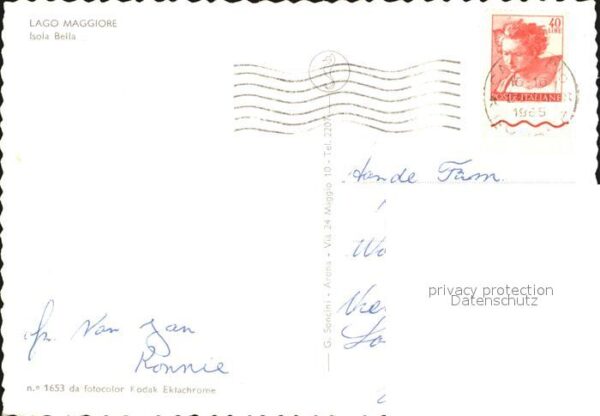 LAGO MAGGIORE
Isola Bella
40
LIRE
POSTE ITALIANE
1965
G. Soncini - Arona - Via 24 Maggio 10 - Tel. 220
Aan de Fam.
privacy protection
Datenschutz
Van Jan
Ronnie
n.º 1653 da fotocolor Kodak Ektachrome